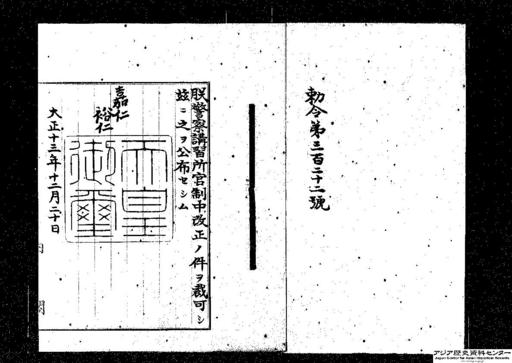 勅令第三百二十二號
朕警察講習所官制中改正ノ件ヲ裁可シ
玆ニ之ヲ公布セシム
嘉仁
裕仁
天皇
御璽
大正十三年十二月二十日
内 閣
アジア歴史資料センター
Japan Center for Asian Historical Records